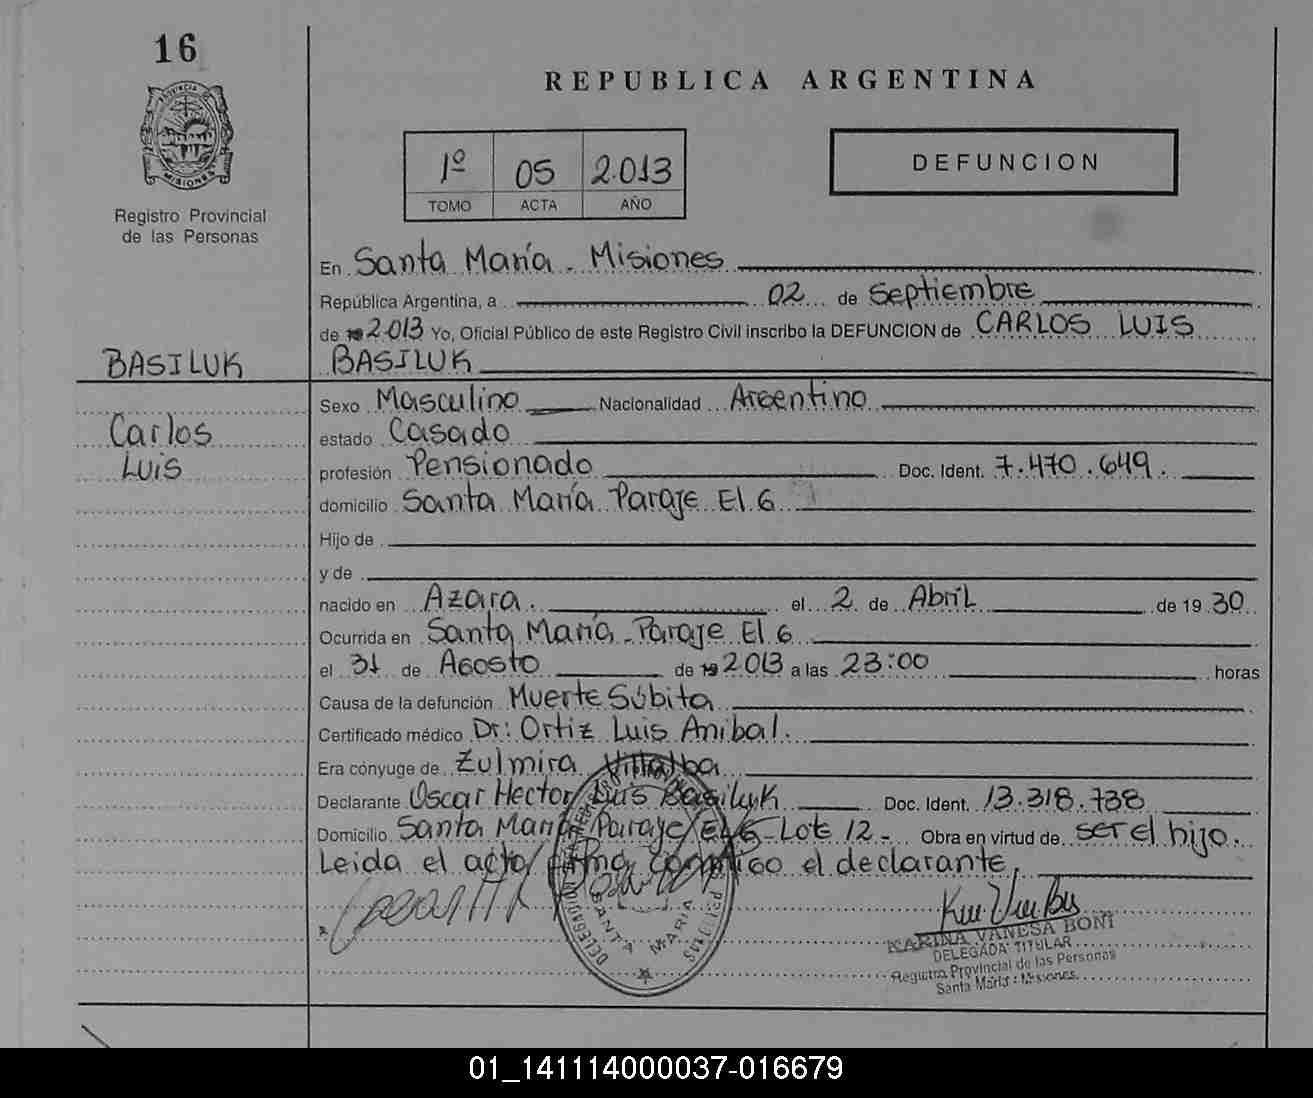 16
PROVINCIA DE
MISIONES
Registro Provincial
de las Personas
REPUBLICA ARGENTINA
1º 05 2.013
TOMO ACTA AÑO
DEFUNCION
En Santa María - Misiones
República Argentina, a 02 de Septiembre
de 19 2.013 Yo, Oficial Público de este Registro Civil inscribo la DEFUNCION de CARLOS LUIS
BASILUK BASILUK
Sexo Masculino Nacionalidad Argentino
Carlos estado Casado
Luis profesión Pensionado Doc. Ident. 7.470.649.
domicilio Santa María Paraje El 6
Hijo de
y de
nacido en Azara. el 2 de Abril de 19 30
Ocurrida en Santa María - Paraje El 6
el 31 de Agosto de 19 2013 a las 23:00 horas
Causa de la defunción Muerte Súbita
Certificado médico Dr: Ortiz Luis Anibal.
Era cónyuge de Zulmira Villalba
Declarante Oscar Hector Luis Basiluk Doc. Ident. 13.318.738
Domicilio Santa María Paraje El 6 - Lote 12 - Obra en virtud de ser el hijo.
Leida el acta firma conmigo el declarante.
SANTA MARIA
KARINA VANESA BONI
DELEGADA TITULAR
Registro Provincial de las Personas
Santa María - Misiones
01_141114000037-016679